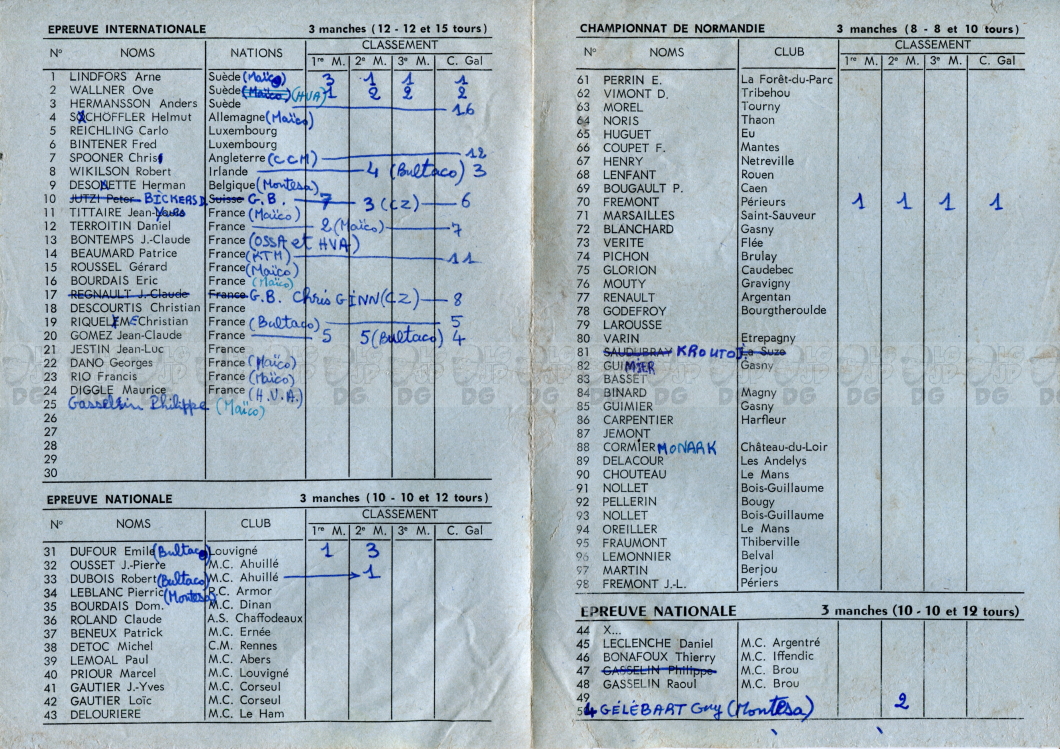 EPREUVE INTERNATIONALE 3 manches (12 - 12 et 15 tours)
N° NOMS NATIONS CLASSEMENT
1re M. 2e M. 3e M. C. Gal
1 LINDFORS Arne Suède (Maïco) 3 1 1 1
2 WALLNER Ove Suède (Maïco) (HVA) 1 2 2 2
3 HERMANSSON Anders Suède 16
4 SCHÖFFLER Helmut Allemagne (Maïco)
5 REICHLING Carlo Luxembourg
6 BINTENER Fred Luxembourg
7 SPOONER Chris Angleterre (CCM) 12
8 WIKILSON Robert Irlande 4 (Bultaco) 3
9 DESONETTE Herman Belgique (Montesa)
10 JUTZI Peter BICKERS D. Suisse G.B. 7 3 (CZ) 6
11 TITTAIRE Jean-Louis France (Maïco)
12 TERROITIN Daniel France 2 (Maïco) 7
13 BONTEMPS J.-Claude France (OSSA et HVA)
14 BEAUMARD Patrice France (KTM) 11
15 ROUSSEL Gérard France (Maïco)
16 BOURDAIS Eric France (Maïco)
17 REGNAULT J.-Claude France G.B. Chris GINN (CZ) 8
18 DESCOURTIS Christian France
19 RIQUELEME Christian France (Bultaco) 5
20 GOMEZ Jean-Claude France 5 5 (Bultaco) 4
21 JESTIN Jean-Luc France
22 DANO Georges France (Maïco)
23 RIO Francis France (Maïco)
24 DIGGLE Maurice France (H.V.A.)
25 Gasselin Philippe (Maïco)
26
27
28
29
30
EPREUVE NATIONALE 3 manches (10 - 10 et 12 tours)
N° NOMS CLUB CLASSEMENT
1re M. 2e M. 3e M. C. Gal
31 DUFOUR Emile (Bultaco) Louvigné 1 3
32 OUSSET J.-Pierre M.C. Ahuillé
33 DUBOIS Robert (Bultaco) M.C. Ahuillé 1
34 LEBLANC Pierric (Montesa) R.C. Armor
35 BOURDAIS Dom. M.C. Dinan
36 ROLAND Claude A.S. Chaffodeaux
37 BENEUX Patrick M.C. Ernée
38 DETOC Michel C.M. Rennes
39 LEMOAL Paul M.C. Abers
40 PRIOUR Marcel M.C. Louvigné
41 GAUTIER J.-Yves M.C. Corseul
42 GAUTIER Loïc M.C. Corseul
43 DELOURIERE M.C. Le Ham
CHAMPIONNAT DE NORMANDIE 3 manches (8 - 8 et 10 tours)
N° NOMS CLUB CLASSEMENT
1re M. 2e M. 3e M. C. Gal
61 PERRIN E. La Forêt-du-Parc
62 VIMONT D. Tribehou
63 MOREL Tourny
64 NORIS Thaon
65 HUGUET Eu
66 COUPET F. Mantes
67 HENRY Netreville
68 LENFANT Rouen
69 BOUGAULT P. Caen
70 FREMONT Périeurs 1 1 1 1
71 MARSAILLES Saint-Sauveur
72 BLANCHARD Gasny
73 VERITE Flée
74 PICHON Brulay
75 GLORION Caudebec
76 MOUTY Gravigny
77 RENAULT Argentan
78 GODEFROY Bourgtheroulde
79 LAROUSSE
80 VARIN Etrepagny
81 SAUDUBRAY KROUTOJ. La Suze
82 GUIMIER Gasny
83 BASSET
84 BINARD Magny
85 GUIMIER Gasny
86 CARPENTIER Harfleur
87 JEMONT
88 CORMIER MONARK Château-du-Loir
89 DELACOUR Les Andelys
90 CHOUTEAU Le Mans
91 NOLLET Bois-Guillaume
92 PELLERIN Bougy
93 NOLLET Bois-Guillaume
94 OREILLER Le Mans
95 FRAUMONT Thiberville
96 LEMONNIER Belval
97 MARTIN Berjou
98 FREMONT J.-L. Périers
EPREUVE NATIONALE 3 manches (10 - 10 et 12 tours)
44 X...
45 LECLENCHE Daniel M.C. Argentré
46 BONAFOUX Thierry M.C. Iffendic
47 GASSELIN Philippe M.C. Brou
48 GASSELIN Raoul M.C. Brou
49
GÉLÉBART Guy (Montesa) 2